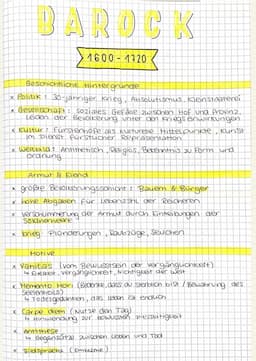 BAROCK
1600-1720
Geschichtliche Hintergründe
x Politik: 30-jähriger Krieg, Absolutismus, Kleinstaaterei
x Gesellschaft: soziales Gefälle zwischen Hof und Provinz,
Leiden der Bevölkerung unter den Kriegseinwirkungen
x Kultur: Fürstenhöfe als kulturelle Mittelpunkte, Kunst
im Dienst fürstlicher Repräsentation
x Weltbild: Antithetisch, Religiös, Bekenntnis zu Form und
Ordnung
Armut & Elend
x größte Bevölkerungsschicht: Bauern & Bürger
x hohe Abgaben für Lebensstil der Reicheren
x Verschlimmerung der Armut durch Eintreibungen der
Söldnerheere
x Krieg: Plünderungen, Raubzüge, Seuchen
Motive
x Vanitas (vom Bewusstsein der Vergänglichkeit)
↳ Eitelkeit, Vergänglichkeit, Nichtigkeit der Welt
x Memento Mori (Bedenke, dass du sterblich bist / Bewahrung des
Seelenheils)
↳ Todesgedanken, das Leben ist endlich
x Carpe diem (Nutze den Tag)
↳ Hinwendung zur bewussten Diesseitigkeit
x Antithese
↳ Gegensätze zwischen Leben und Tod
x Bildsprache (Embleme)